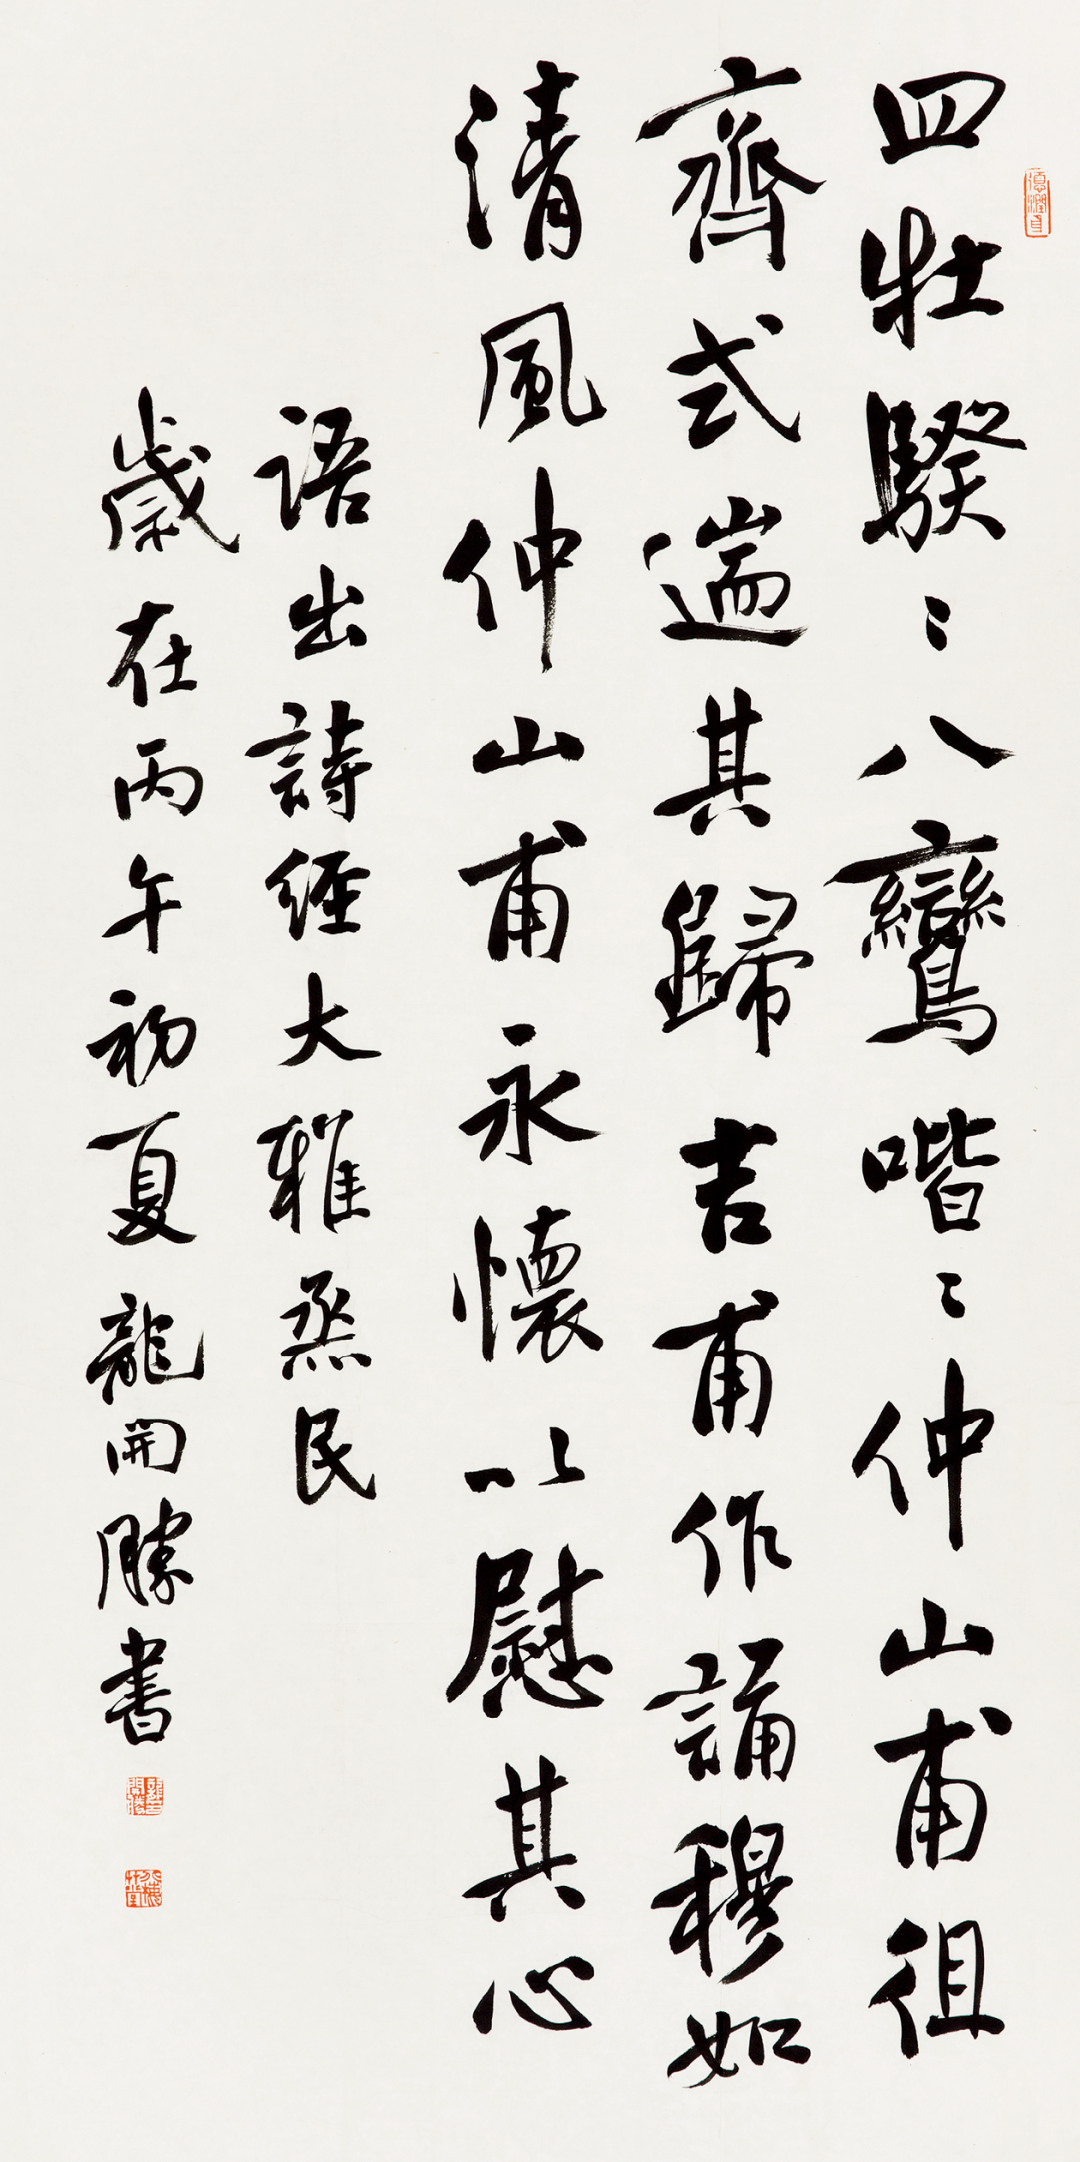 四牡騤〻八鸞喈〻仲山甫徂
齊式遄其歸吉甫作誦穆如
清風仲山甫永懷以慰其心
语出詩經大雅烝民
歲在丙午初夏龍開勝書
德潤身
龍開勝